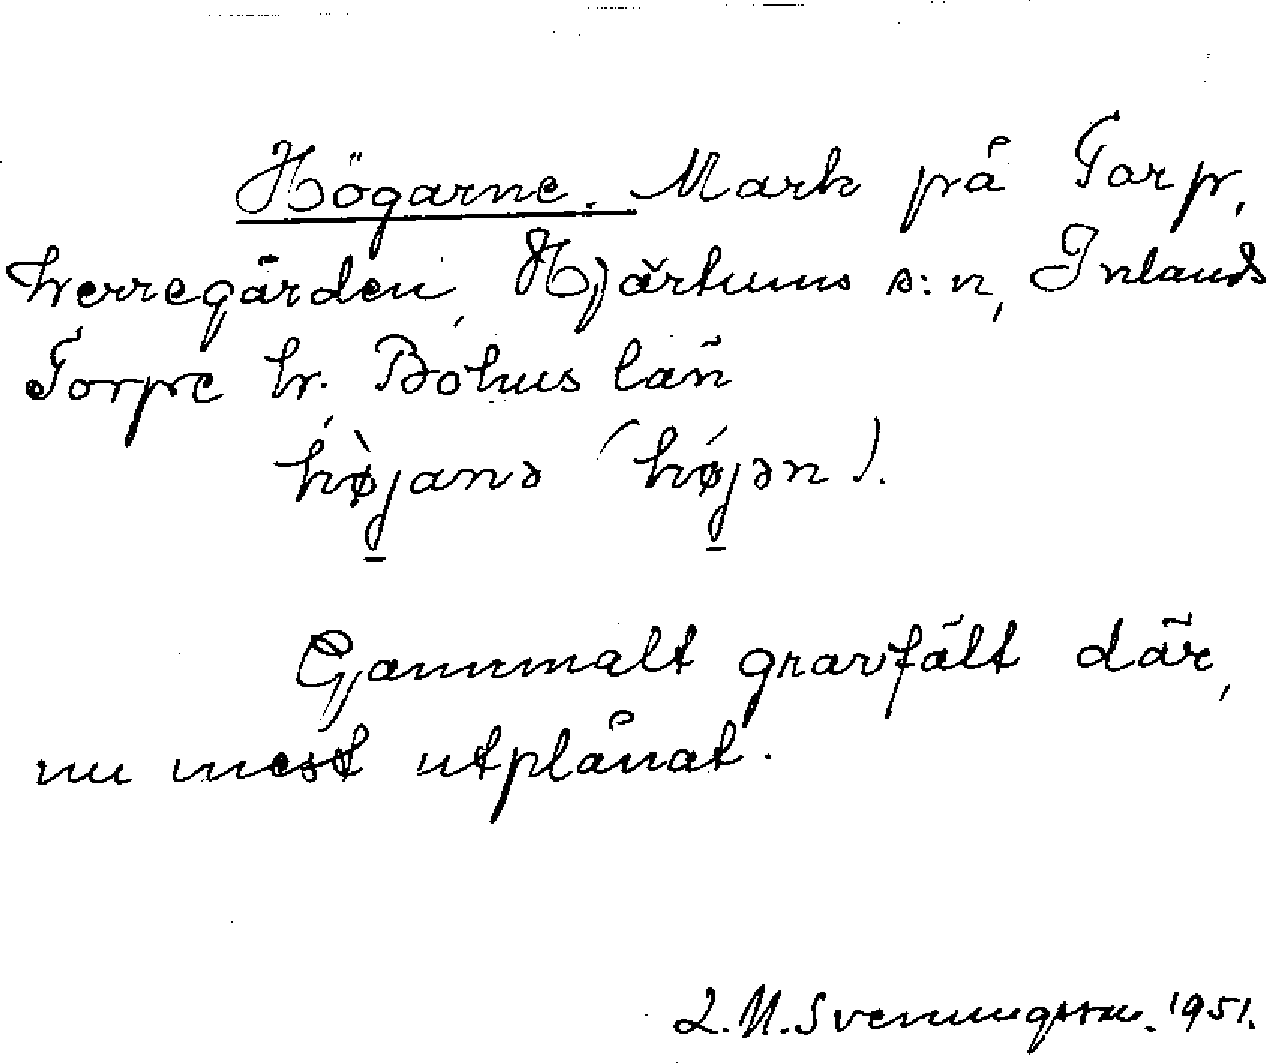 Högarne. Mark på Torp,
herregården, Hjärtums s:n, Inlands
Torpe hr. Bohus län
hø̀janə (høj́ən).
Gammalt gravfält där,
nu mest utplånat.
L.M. Svenungsson. 1951.